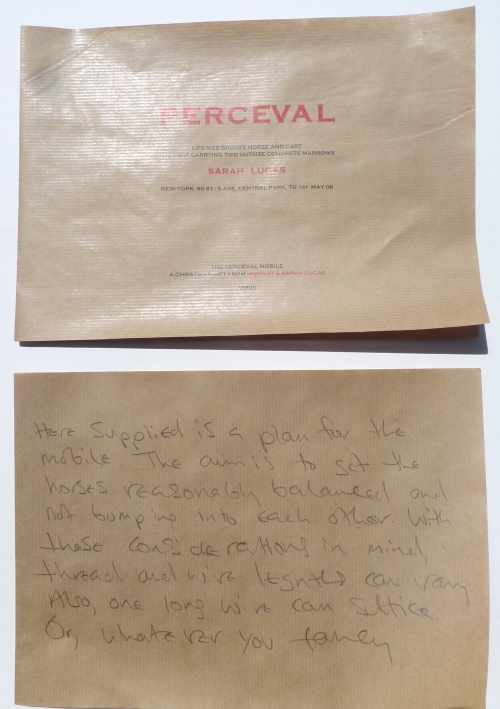 PERCEVAL
LIFE SIZE BRONZE HORSE AND CART
THE CART CARRYING TWO OUTSIZE CONCRETE MARROWS
SARAH LUCAS
NEW YORK, 60 ST : 5 AVE, CENTRAL PARK, TO 1ST MAY 08
THE PERCEVAL MOBILE
A CHRISTMAS GIFT FROM & SARAH LUCAS
Here Supplied is a plan for the
mobile. The aim is to get the
horses reasonably balanced and
not bumping into each other. With
these considerations in mind,
thread and wire legnths can vary
Also, one long wire can suffice
Or, whatever you fancy